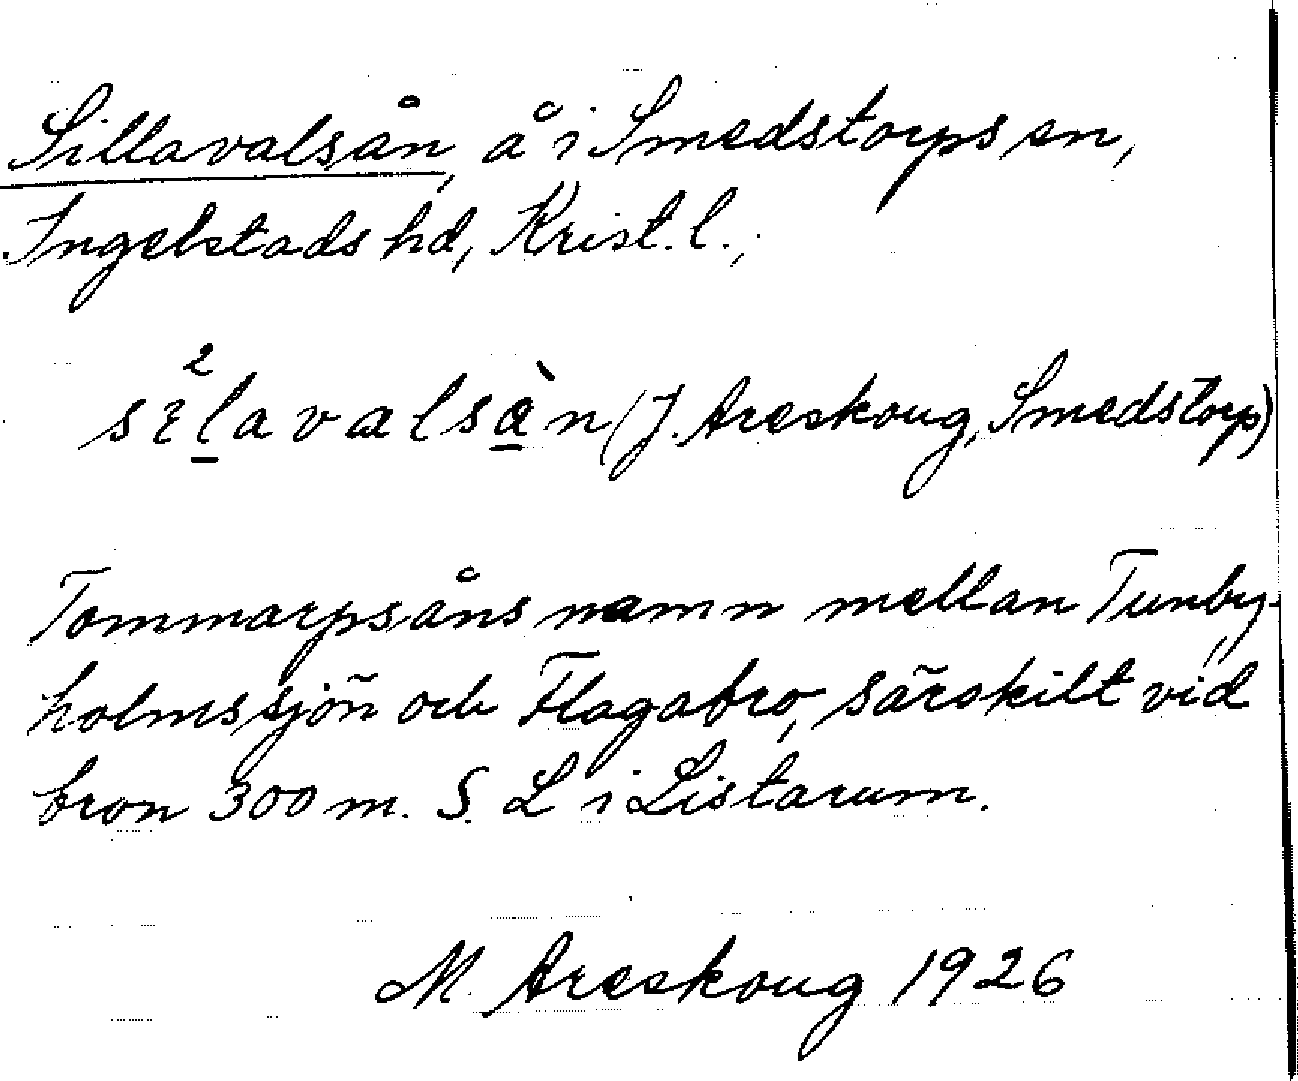 Sillavalsån, å i Smedstorps sn,
Ingelstads hd, Krist. l.,
sı²l̲avalsà̲n (J. Areskoug, Smedstorp)
Tommarpsåns namn mellan Tunby-
holmssjön och Flagabro, särskilt vid
bron 300 m. S. L i Listarum.
M. Areskoug 1926